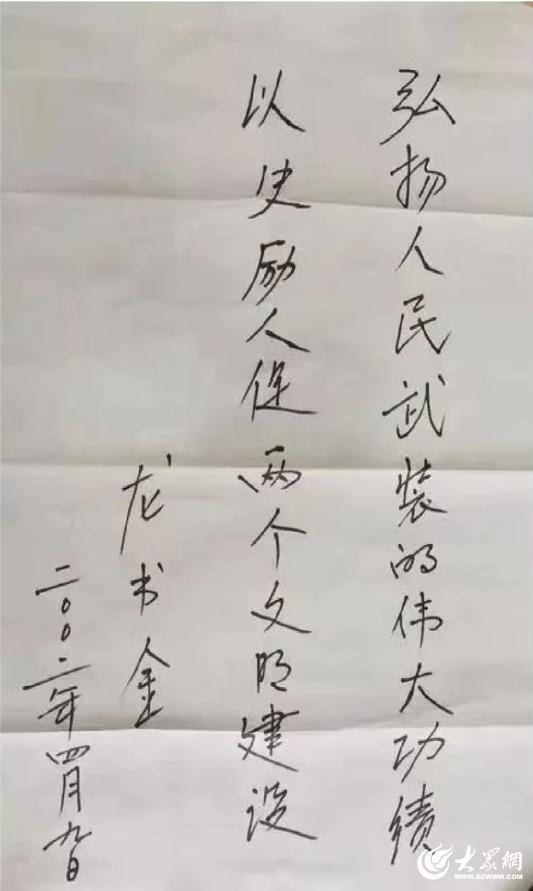 弘扬人民武装的伟大功绩
以史励人促两个文明建设
龙书金
二〇〇二年四月九日
大众網
www.dzwww.com